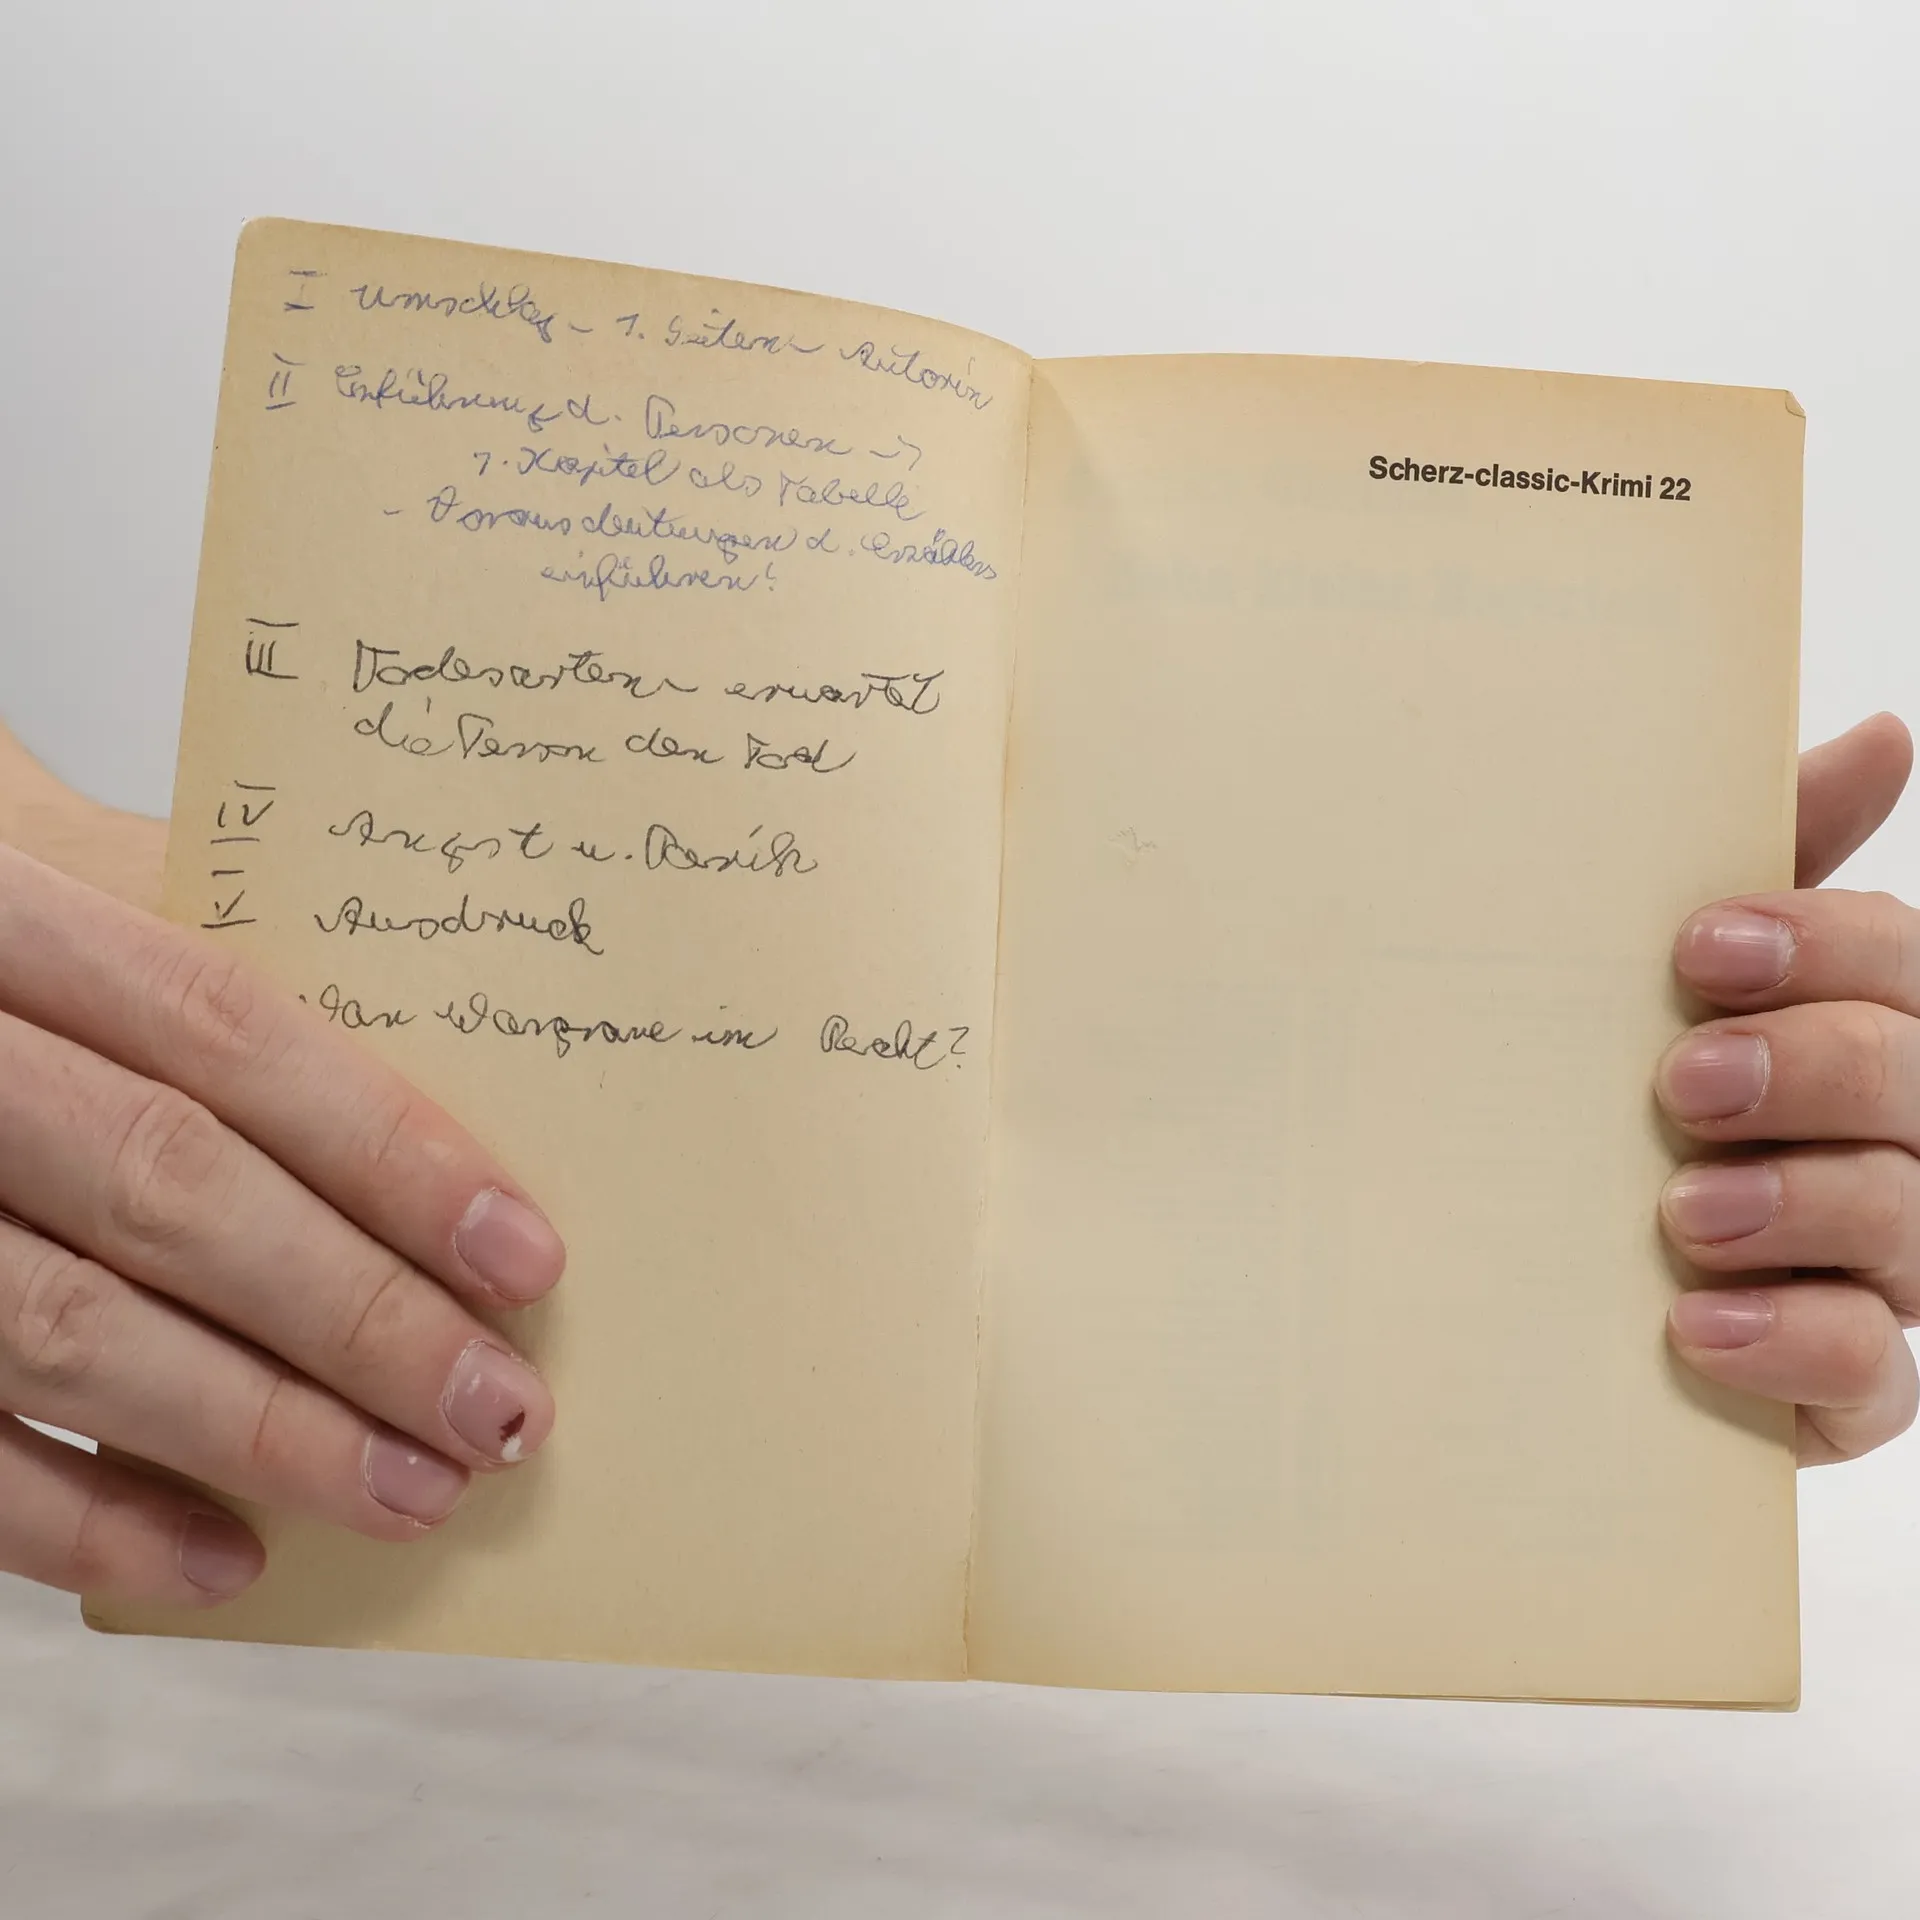 I Umschlag – 1. Seiten – Autorin
II Einführung d. Personen →
1. Kapitel als Tabelle
- Vorausdeutungen d. Erzählers
einführen!
III Todesarten – erwartet
die Person den Tod
IV Angst u. Panik
V Ausdruck
Wargrave im Recht?
Scherz-classic-Krimi 22